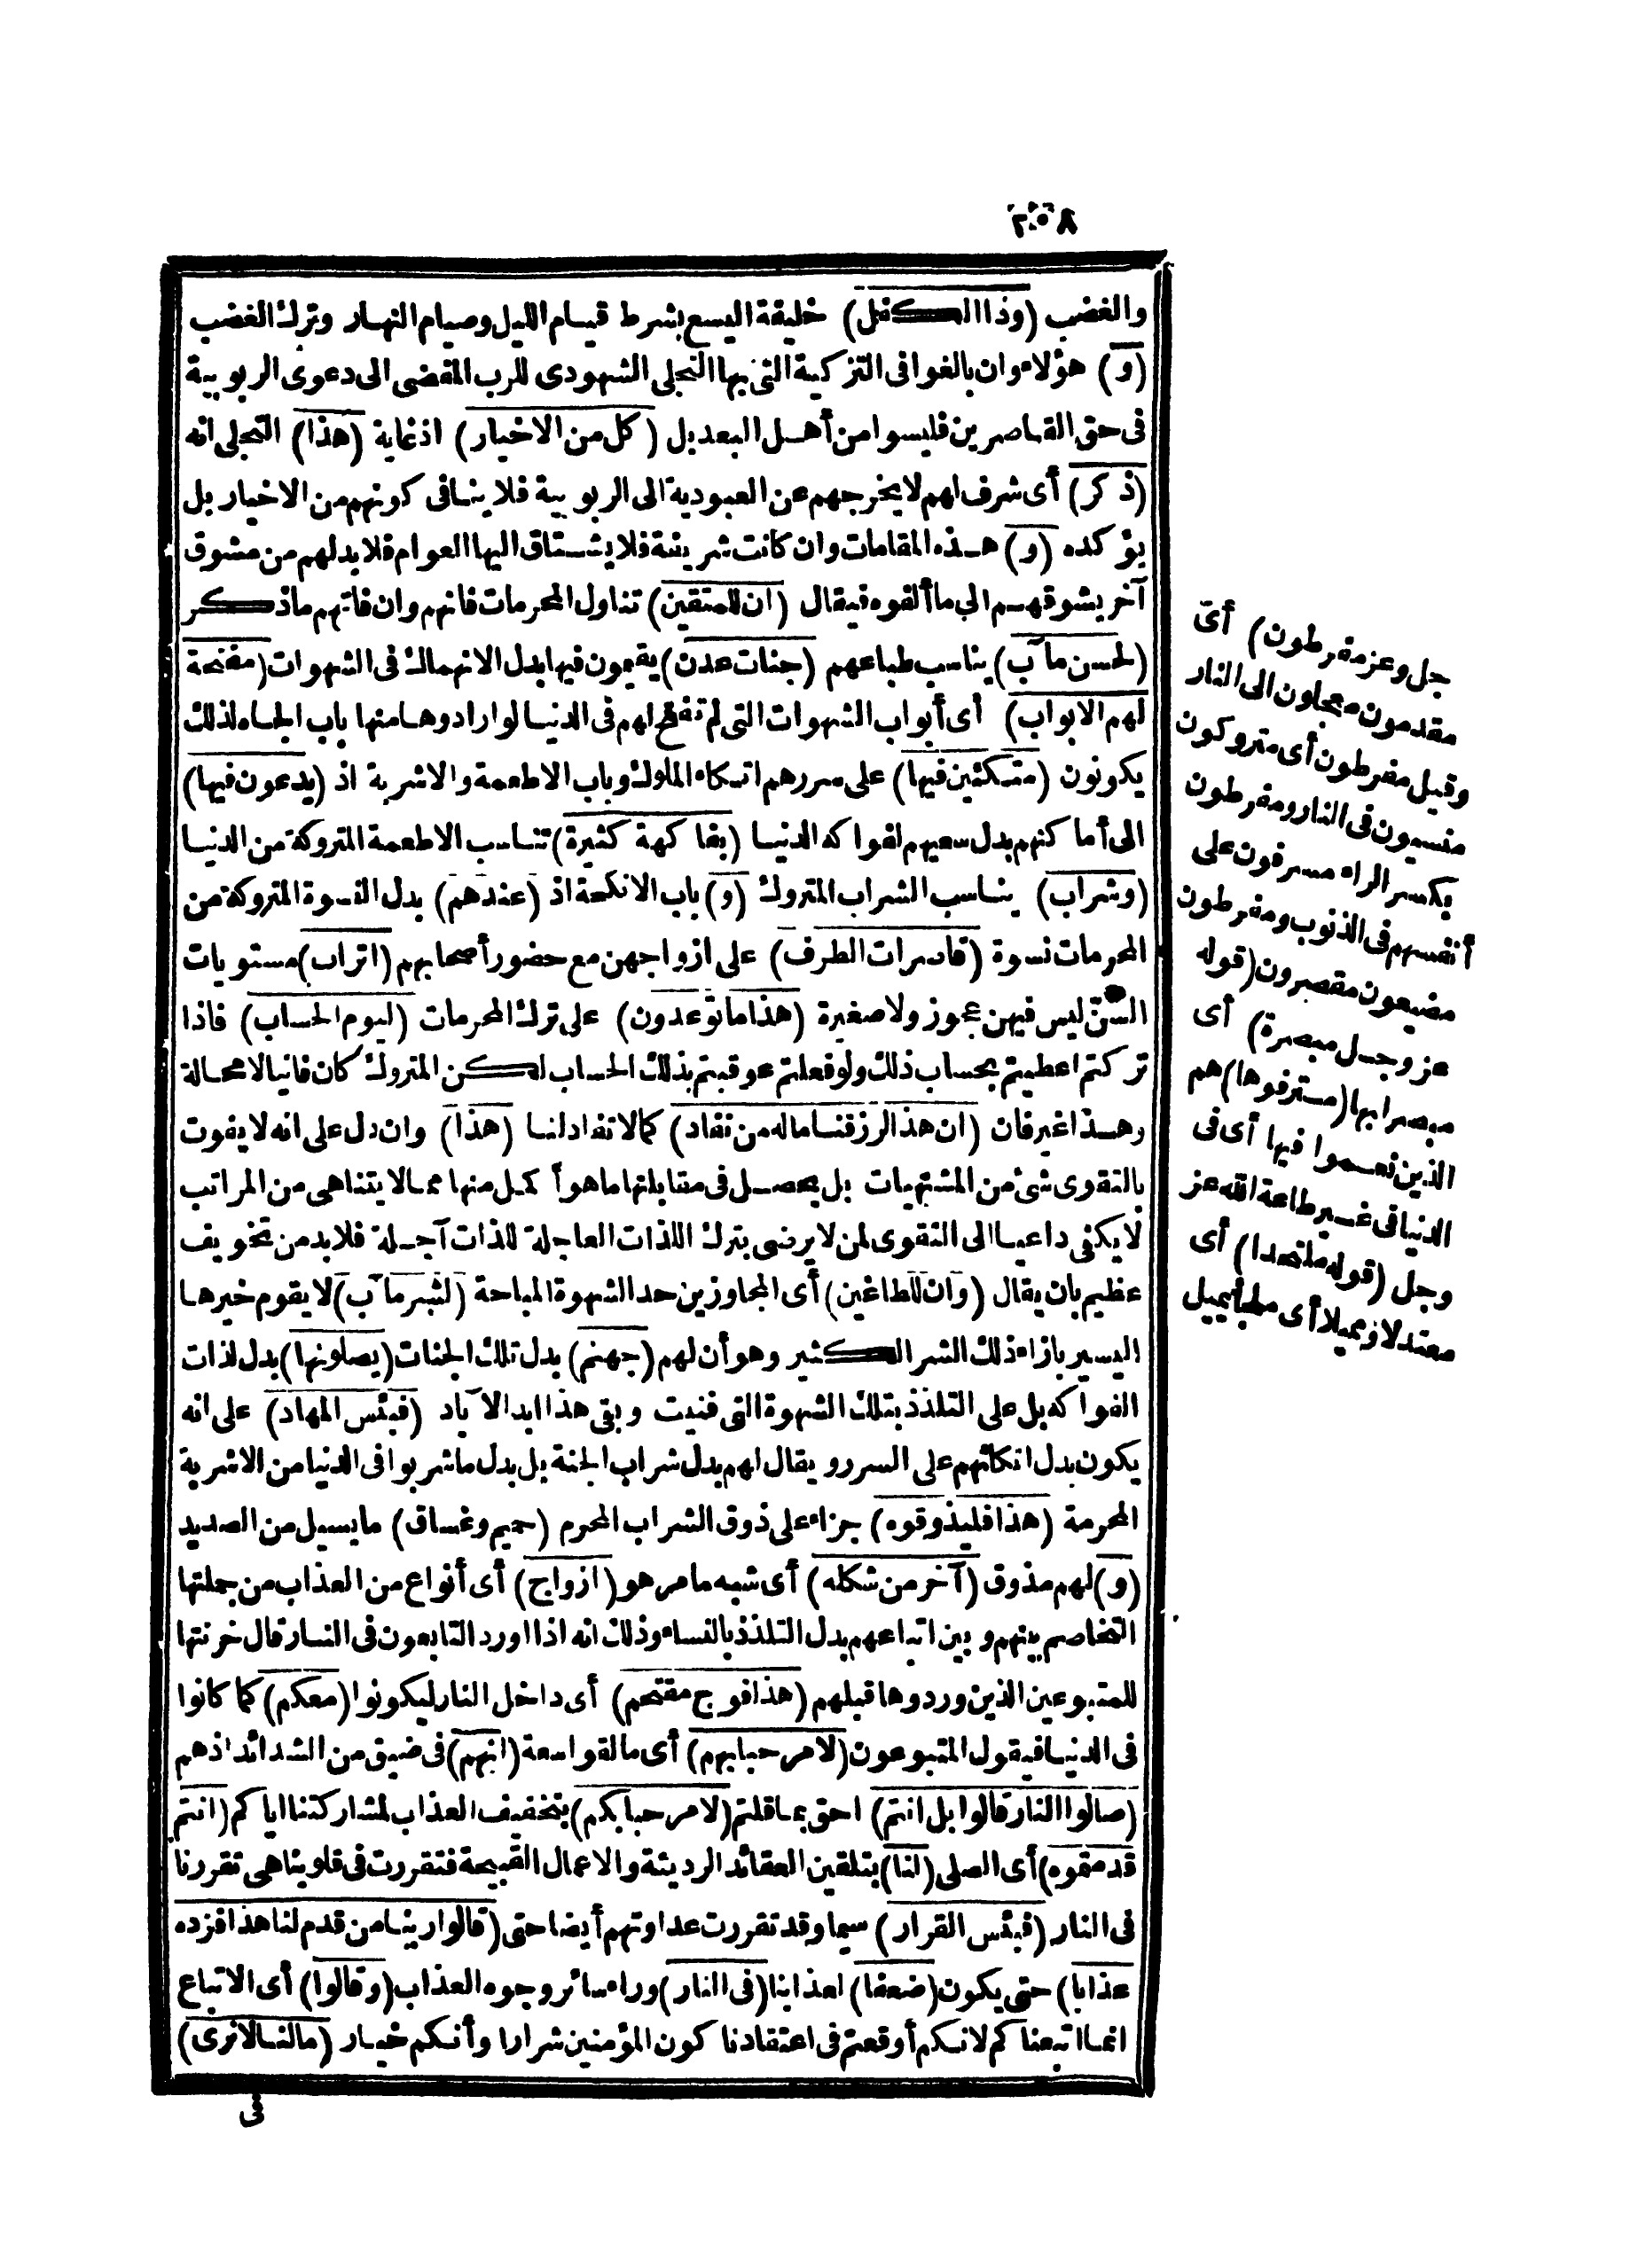 ٢٠٥٨
والغضب (وذا الكفل) خليفة اليسع بشرط قيام الليل وصيام النهار وترك الغضب
(و) هؤلاء وان بالغوا فى التزكية التى بها التجلى الشهودى للرب المفضى الى دعوى الربوبية
فى حق القاصرين فليسوا من أهل البعد بل (كل من الاخيار) اذ غاية (هذا) التجلى انه
(ذكر) أى شرف لهم لا يخرجهم عن العبودية الى الربوبية فلا ينافى كونهم من الاخيار بل
يؤكده (و) هذه المقامات وان كانت شريفة فلا يشتاق اليها العوام فلا بد لهم من مشوق
آخر يشوقهم الى ما ألفوه فيقال (ان للمتقين) تناول المحرمات فانهم وان فاتهم ما ذكر
(لحسن مآب) يناسب طباعهم (جنات عدن) يقيمون فيها بدل الانهماك فى الشهوات (مفتحة
لهم الابواب) أى أبواب الشهوات التى لم تفتح لهم فى الدنيا لو ارادوها منها باب الجاه لذلك
يكونون (متكئين فيها) على سررهم اتكاء الملوك وباب الاطعمة والاشربة اذ (يدعون فيها)
الى أماكنهم بدل سعيهم لفواكه الدنيا (بفاكهة كثيرة) تناسب الاطعمة المتروكة من الدنيا
(وشراب) يناسب الشراب المتروك (و) باب الانكحة اذ (عندهم) بدل النسوة المتروكة من
المحرمات نسوة (قاصرات الطرف) على ازواجهن مع حضور أصحابهم (اتراب) مستويات
السن ليس فيهن عجوز ولا صغيرة (هذا ما توعدون) على ترك المحرمات (ليوم الحساب) فاذا
تركتم اعطيتم بحساب ذلك ولو فعلتم عوقبتم بذلك الحساب لكن المتروك كان فانيا لا محالة
وهذا غير فان (ان هذا لرزقنا ماله من نفاد) كما لا نفاد لنا (هذا) وان دل على انه لا يفوت
بالتقوى شئ من المشتهيات بل يحصل فى مقابلتها ما هو أكمل منها مما لا يتناهى من المراتب
لا يكفى داعيا الى التقوى لمن لا يرضى بترك اللذات العاجلة للذات آجلة فلا بد من تخويف
عظيم بان يقال (وان للطاغين) أى المجاوزين حد الشهوة المباحة (لشر مآب) لا يقوم خيرها
اليسير بازاء ذلك الشر الكثير وهو أن لهم (جهنم) بدل تلك الجنات (يصلونها) بدل لذات
الفواكه بل على التلذذ بتلك الشهوة التى فنيت وبقى هذا ابد الآباد (فبئس المهاد) على انه
يكون بدل اتكائهم على السرر ويقال لهم بدل شراب الجنة بل بدل ما شربوا فى الدنيا من الاشربة
المحرمة (هذا فليذوقوه) جزاء على ذوق الشراب المحرم (حميم وغساق) ما يسيل من الصديد
(و) لهم مذوق (آخر من شكله) أى شبه ما مر هو (ازواج) أى أنواع من العذاب من جملتها
التخاصم بينهم وبين اتباعهم بدل التلذذ بالنساء وذلك انه اذا اورد التابعون فى النار قال خزنتها
للمتبوعين الذين وردوها قبلهم (هذا فوج مقتحم) أى داخل النار ليكونوا (معكم) كما كانوا
فى الدنيا فيقول المتبوعون (لا مرحبا بهم) أى ما لقوا سعة (انهم) فى ضيق من الشدائد اذ هم
(صالوا النار قالوا بل انتم) احق بما قلتم (لا مرحبا بكم) بتخفيف العذاب لمشاركتنا اياكم (انتم
قدمتموه) أى الصلى (لنا) بتلقين العقائد الرديئة والاعمال القبيحة فتقررت فى قلوبنا هى تقررنا
فى النار (فبئس القرار) سيما وقد تقررت عداوتهم أيضا حتى (قالوا ربنا من قدم لنا هذا فزده
عذابا) حتى يكون (ضعفا) لعذابنا (فى النار) وراء سائر وجوه العذاب (وقالوا) أى الاتباع
انما اتبعناكم لانكم أوقعتم فى اعتقادنا كون المؤمنين شرارا وأنكم خيار (ما لنا لا نرى)
فى
جل وعز مفرطون) أى
مقدمون معجلون الى النار
وقيل مفرطون أى متروكون
منسيون فى النار ومفرطون
بكسر الراء مسرفون على
أنفسهم فى الذنوب ومفرطون
مضيعون مقصرون (قوله
عز وجل مبصرة) أى
مبصرا بها (مترفوها) هم
الذين نعموا فيها أى فى
الدنيا فى غير طاعة الله عز
وجل (قوله ملتحدا) أى
معتدلا ومميلا أى ملجأ يميل